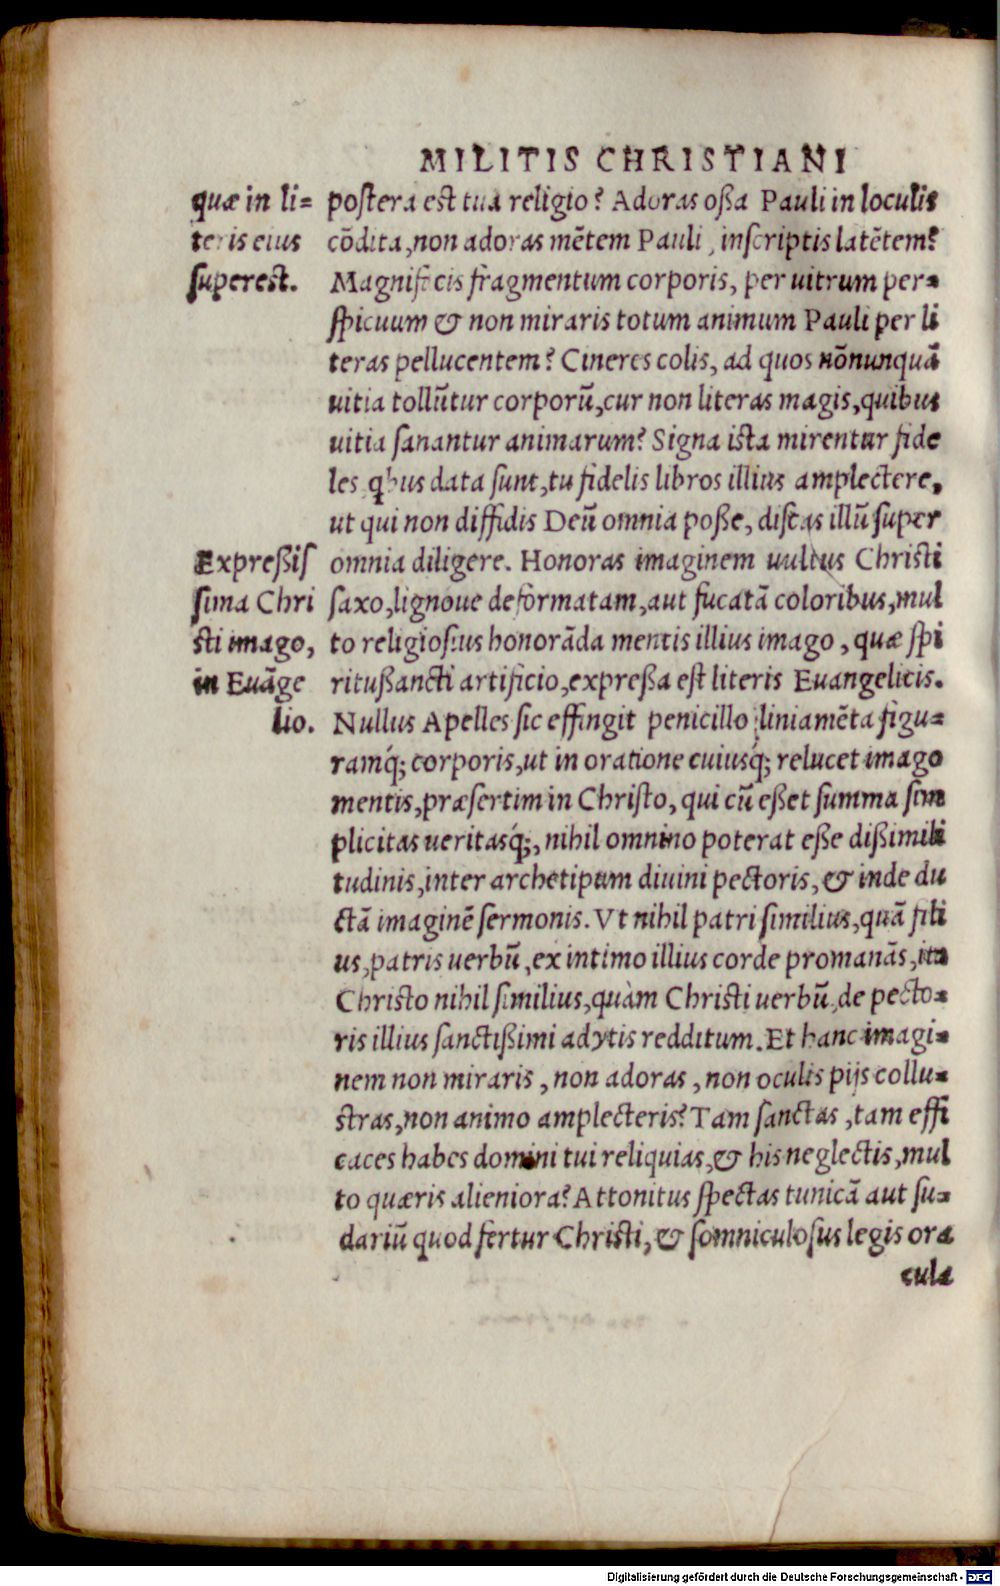 MILITIS CHRISTIANI
quæ in li=
teris eius
superest.
postera est tua religio? Adoras oßa Pauli in loculis
cōdita, non adoras mētem Pauli, inscriptis latētem?
Magnificis fragmentum corporis, per uitrum per=
spicuum & non miraris totum animum Pauli per li
teras pellucentem? Cineres colis, ad quos nōnunquā
uitia tollūtur corporū, cur non literas magis, quibus
uitia sanantur animarum? Signa ista mirentur fide
les qbus data sunt, tu fidelis libros illius amplectere,
ut qui non diffidis Deū omnia poße, discas illū super
Expreßis
sima Chri
sti imago,
in Euāge
lio.
omnia diligere. Honoras imaginem uultus Christi
saxo, lignoue deformatam, aut fucatā coloribus, mul
to religiosius honorāda mentis illius imago, quæ spi
ritußancti artificio, expreßa est literis Euangelicis.
Nullus Apelles sic effingit penicillo liniamēta figu=
ramq́; corporis, ut in oratione cuiusq́; relucet imago
mentis, præsertim in Christo, qui cū eßet summa sim
plicitas ueritasq́;, nihil omnino poterat eße dißimili
tudinis, inter archetipum diuini pectoris, & inde du
ctā imaginē sermonis. Vt nihil patri similius, quā fili
us, patris uerbū, ex intimo illius corde promanās, ita
Christo nihil similius, quàm Christi uerbū, de pecto=
ris illius sanctißimi adytis redditum. Et hanc imagi=
nem non miraris, non adoras, non oculis pijs collu=
stras, non animo amplecteris? Tam sanctas, tam effi
caces habes domini tui reliquias, & his neglectis, mul
to quæris alieniora? Attonitus spectas tunicā aut su=
dariū quod fertur Christi, & somniculosus legis ora
cula
Digitalisierung gefördert durch die Deutsche Forschungsgemeinschaft - DFG